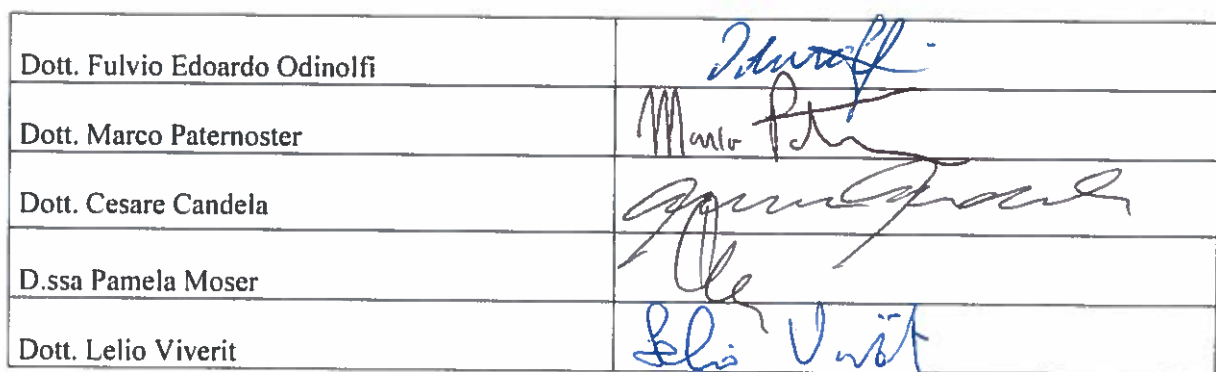 Dott. Fulvio Edoardo Odinolfi
Dott. Marco Paternoster Marco
Dott. Cesare Candela
D.ssa Pamela Moser
Dott. Lelio Viverit Lelio Viverit